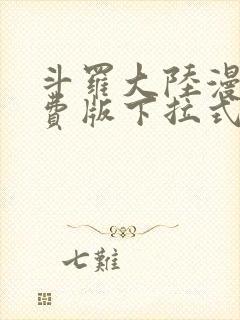 斗羅大陸漫
費版下拉式
七難